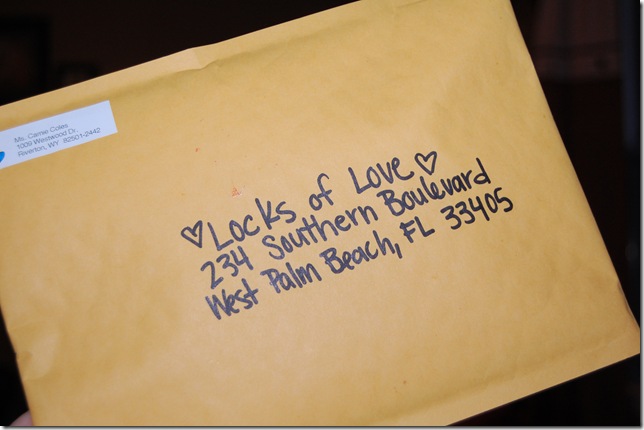 Ms. Carrie Coles
1009 Westwood Dr.
Riverton, WY 82501-2442
♡Locks of Love♡
234 Southern Boulevard
West Palm Beach, FL 33405